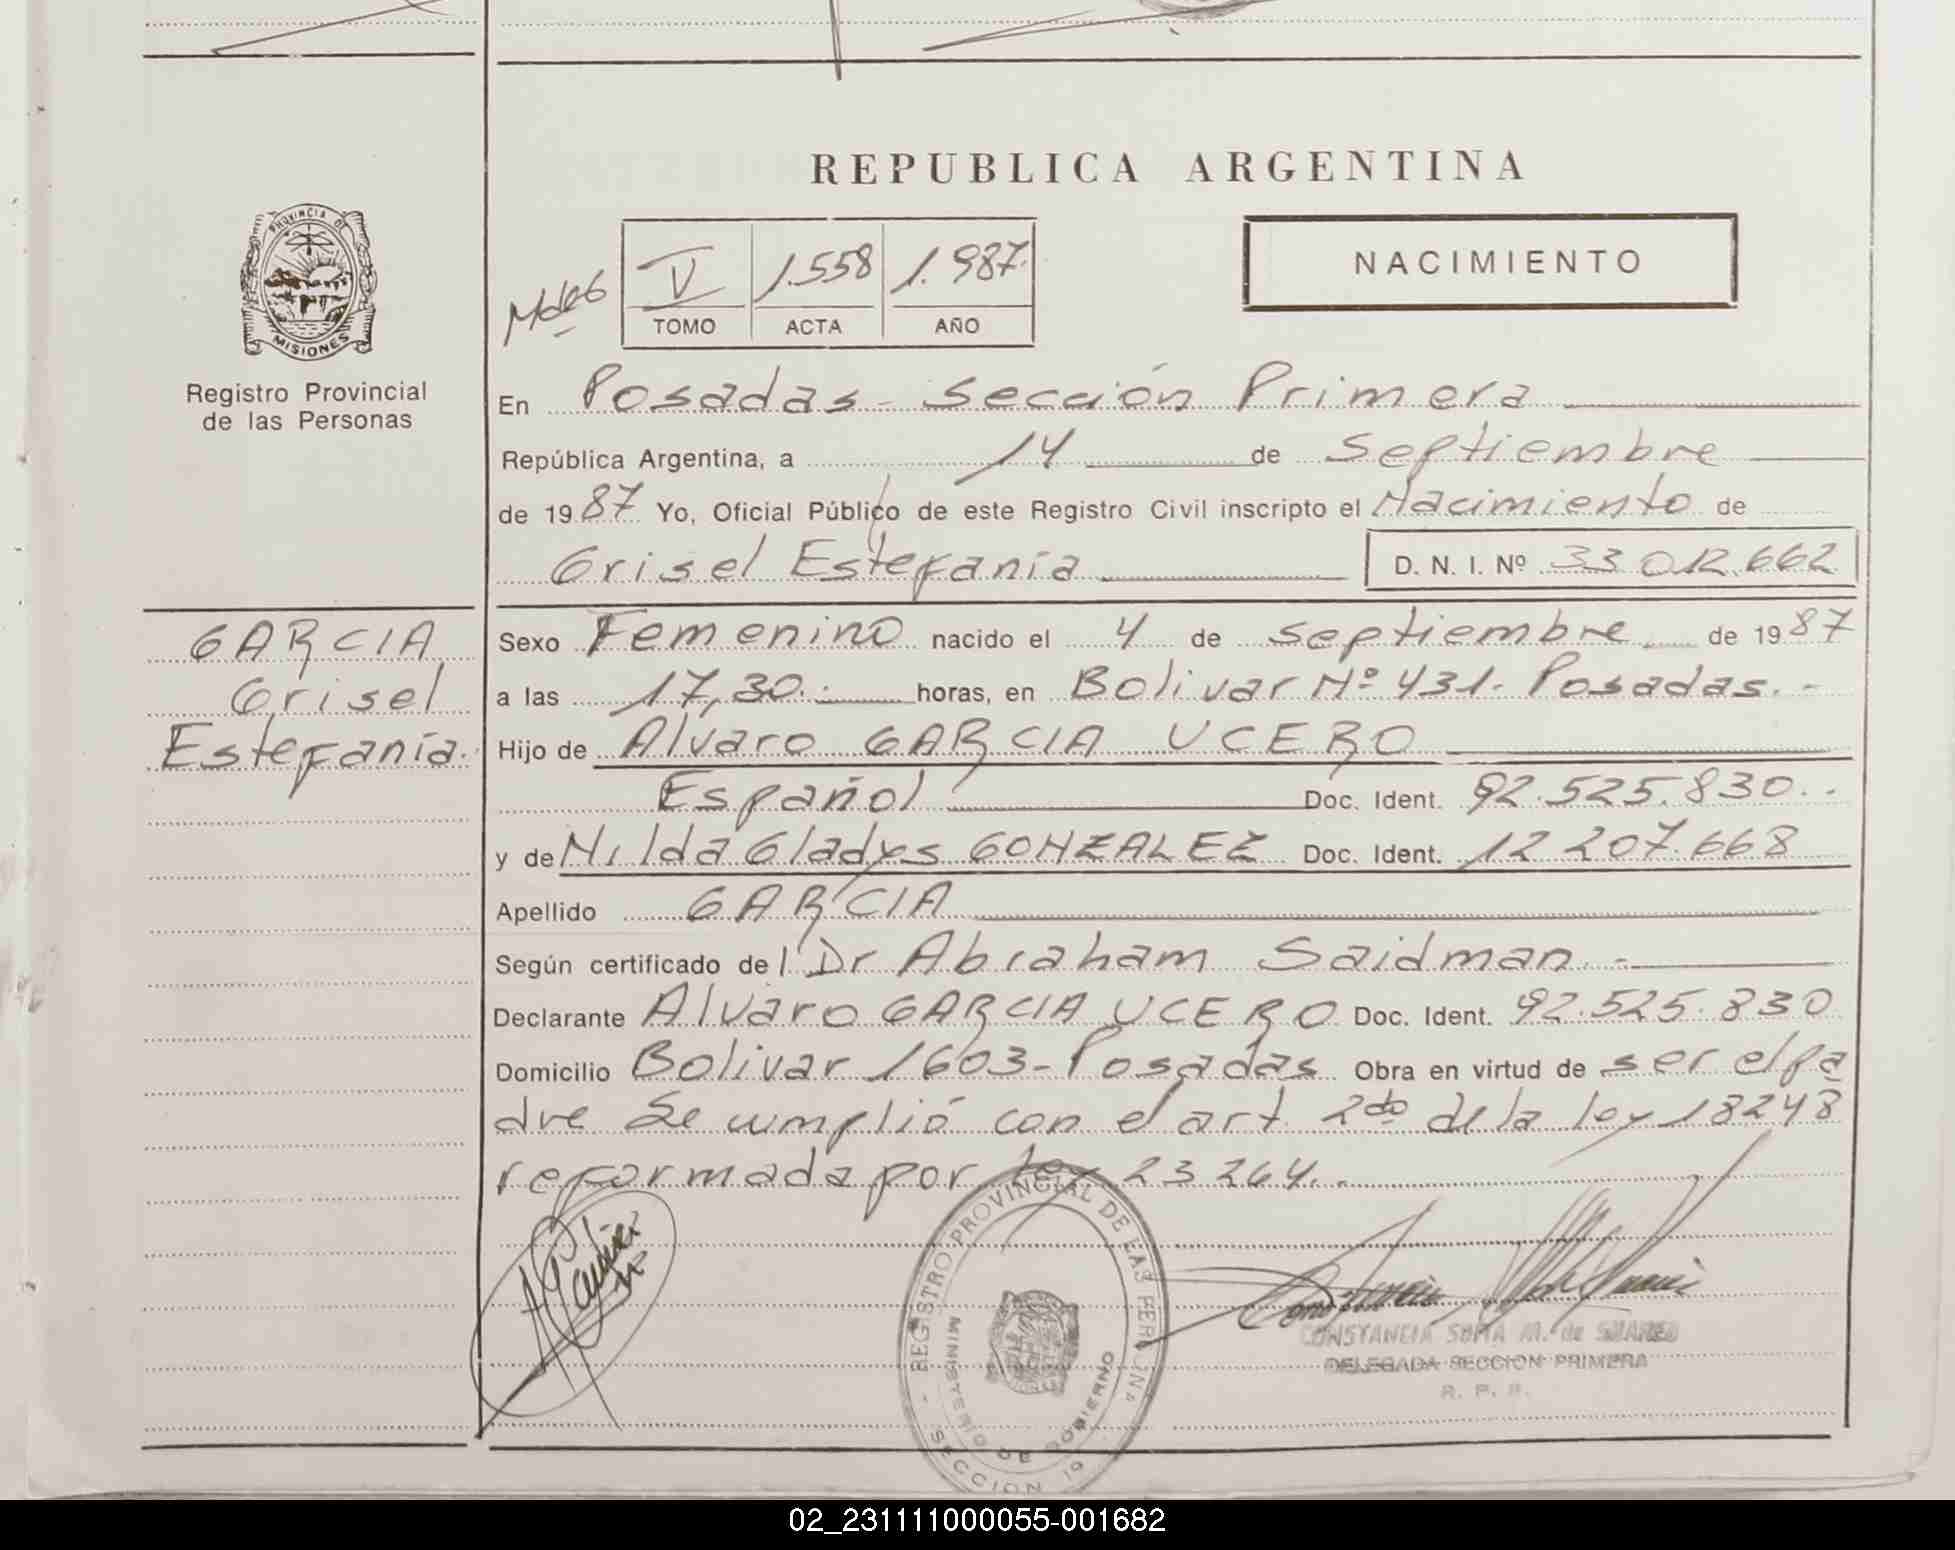 REPUBLICA ARGENTINA
PROVINCIA DE
MISIONES
Registro Provincial
de las Personas
V 1.558 1.987.
TOMO ACTA AÑO
NACIMIENTO
En Posadas - Sección Primera
República Argentina, a 14 de Septiembre
de 1987 Yo, Oficial Público de este Registro Civil inscripto el Nacimiento de
Grisel Estefanía D. N. I. Nº 33 012.662
GARCIA
Grisel
Estefanía.
Sexo Femenino nacido el 4 de Septiembre de 1987
a las 17,30.- horas, en Bolivar Nº 431- Posadas.-
Hijo de Alvaro GARCIA UCERO
Español Doc. Ident. 92.525.830..
y de Nilda Gladys GONZALEZ Doc. Ident. 12 207.668
Apellido GARCIA
Según certificado del Dr Abraham Saidman.-
Declarante Alvaro GARCIA UCERO Doc. Ident. 92.525.830
Domicilio Bolivar 1603-Posadas Obra en virtud de ser el pa
dre Se cumplió con el art 2do de la ley 18248
reformada por Ley 23 264..
REGISTRO PROVINCIAL DE LAS PERSONAS
MINISTERIO DE GOBIERNO
SECCION 1º
CONSTANCIA SOFIA M. de SUAREZ
DELEGADA SECCION PRIMERA
R. P. P.
02_231111000055-001682